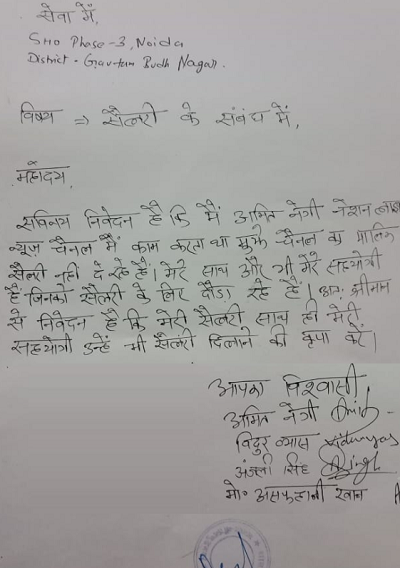 सेवा में,
SHO Phase-3, Noida
District - Gautam Budh Nagar.
विषय => सैलरी के संबंध में,
महोदय,
सविनय निवेदन है कि मैं अमित नेगी नेशन
न्यूज़ चैनल में काम करता था मुझे चैनल का मालिक
सैलरी नहीं दे रहे हैं। मेरे साथ और भी मेरे सहयोगी
हैं जिनको सैलरी के लिए दौड़ा रहे हैं। अतः श्रीमान
से निवेदन है कि मेरी सैलरी साथ ही मेरे
सहयोगी उन्हें भी सैलरी दिलाने की कृपा करें।
आपका विश्वासी,
अमित नेगी
विदुर व्यास
अंजली सिंह
मो० असफहानी खान